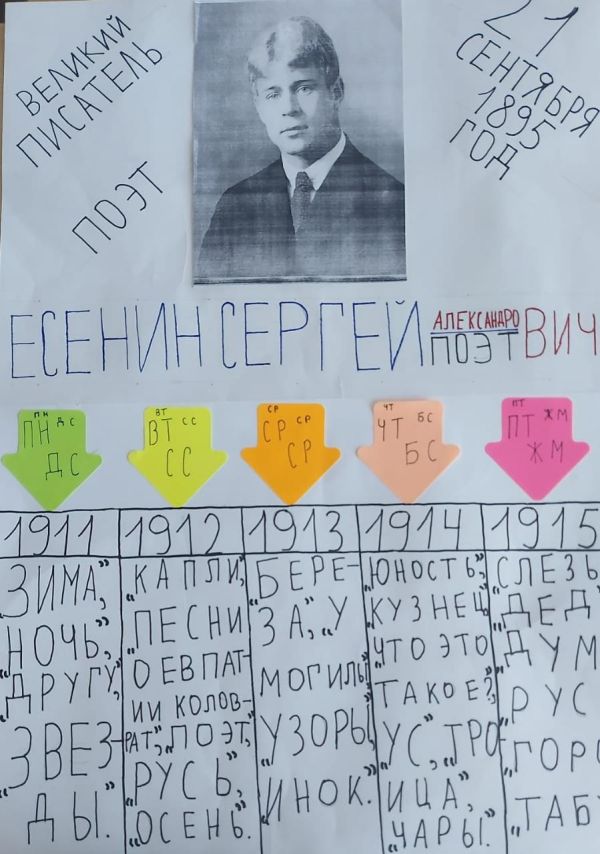 ВЕЛИКИЙ
ПИСАТЕЛЬ
ПОЭТ
21
СЕНТЯБРЯ
1895
ГОД
ЕСЕНИН СЕРГЕЙ АЛЕКСАНДРО ВИЧ
ПОЭТ
ПН ДС
ПН ДС
ДС
ВТ СС
ВТ СС
СС
СР СР
СР СР
СР
ЧТ БС
ЧТ
БС
ПТ ЖМ
ПТ
ЖМ
1911
„ЗИМА,”
„НОЧЬ,”
„ДРУГУ,”
„ЗВЕЗ-
ДЫ.”
1912
„КАПЛИ,”
„ПЕСНИ
О ЕВПАТ-
ИИ КОЛОВ-
РАТ,” „ПОЭТ,”
„РУСЬ,”
„ОСЕНЬ.”
1913
„БЕРЕ-
ЗА,” „У
МОГИЛЫ,”
„УЗОРЫ,”
„ИНОК.”
1914
„ЮНОСТЬ,”
„КУЗНЕЦ,”
„ЧТО ЭТО
ТАКОЕ?,”
„УС,” „ТРО-
ИЦА,”
„ЧАРЫ.”
1915
„СЛЕЗЬ
„ДЕД
ДУМ
„РУС
„ГОРО
„ТАБ